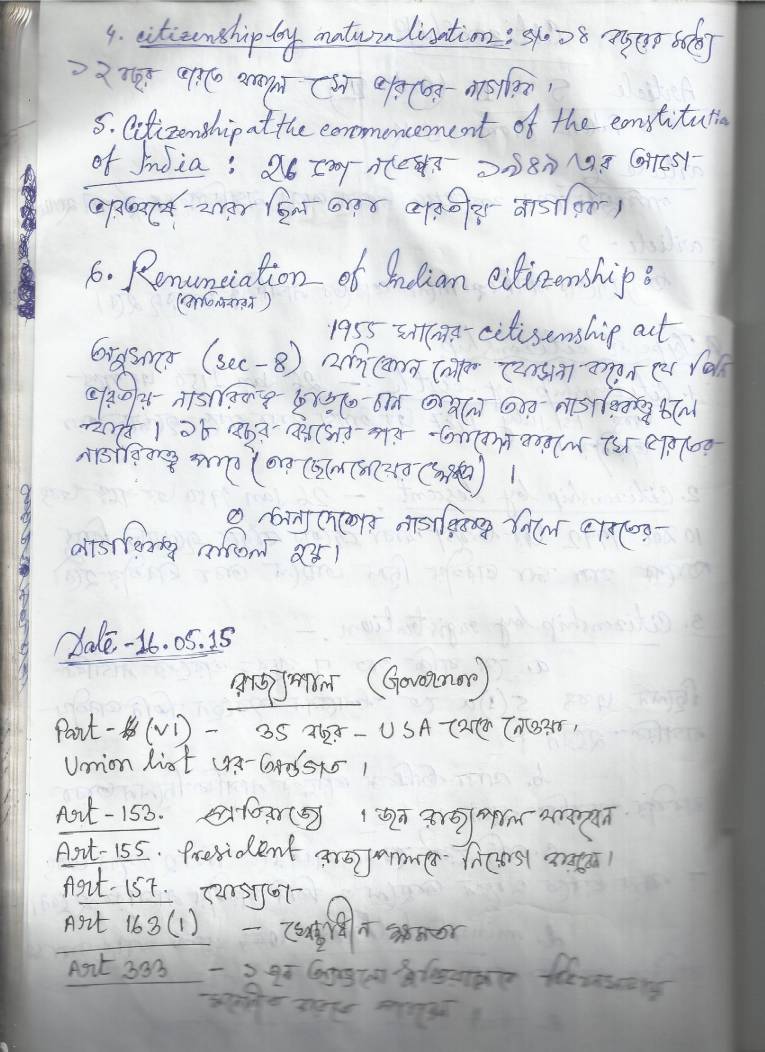 4. citizenship by naturalisation: ১৪ বছরের মধ্যে
১২ বছর ভারতে থাকলে সে ভারতের নাগরিক।
5. Citizenship at the commencement of the constitution
of India : 26 শে নভেম্বর ১৯৪৯ এর আগে
ভারতবর্ষে যারা ছিল তারা ভারতীয় নাগরিক।
6. Renunciation of Indian citizenship :
(বাতিলকরন)
1955 সালের citisenship act
অনুসারে (sec - 8) যদি কোন লোক ঘোষনা করেন যে তিনি
ভারতীয় নাগরিকত্ব ছাড়তে চান তাহলে তার নাগরিকত্ব চলে
যাবে। ১৮ বছর বয়সের পর আবেদন করলে সে ভারতের
নাগরিকত্ব পাবে (তার ছেলেমেয়ের ক্ষেত্রে) ।
অন্য দেশের নাগরিকত্ব নিলে ভারতের
নাগরিকত্ব বাতিল হয়।
Date - 16.05.15
রাজ্যপাল (Governor)
Part - (VI) - 35 বছর - USA থেকে নেওয়া।
Union list এর অর্ন্তগত ।
Art - 153. প্রতিরাজ্যে ১ জন রাজ্যপাল থাকবেন
Art - 155. President রাজ্যপালকে নিয়োগ করবেন।
Art - 157. যোগ্যতা
Art 163 (1) - স্বেচ্ছাধীন ক্ষমতা
Art 333 - ১ জন